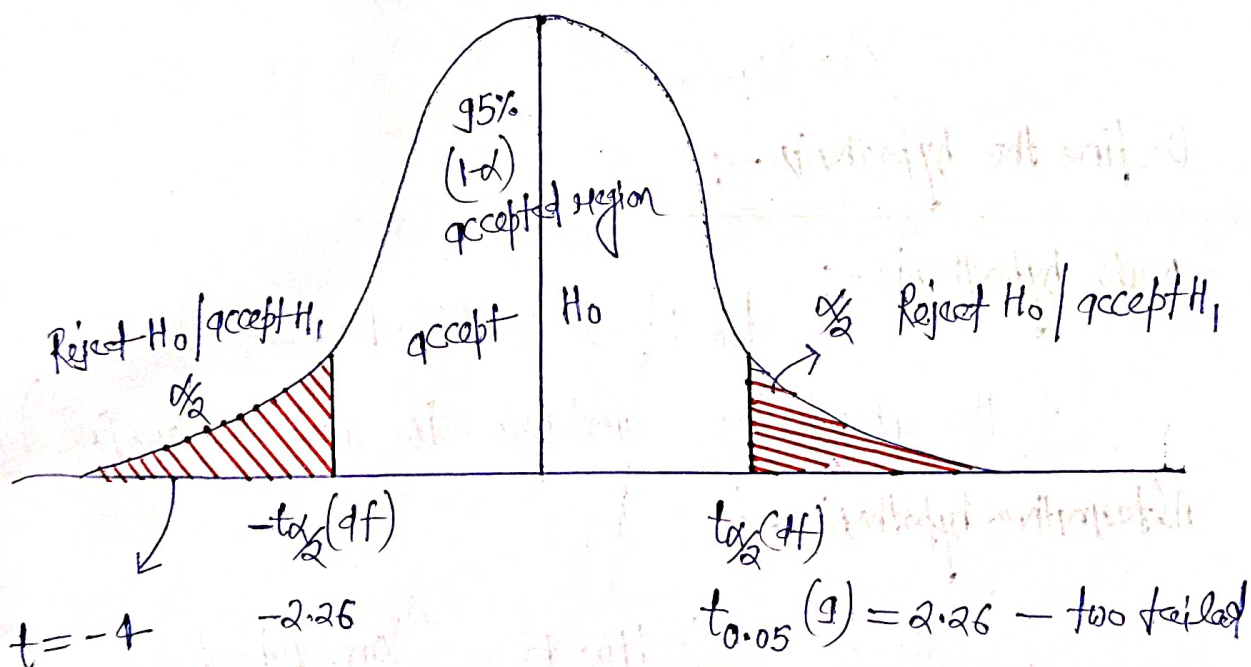 95%
(1-α)
accepted region
accept H₀
Reject H₀ / accept H₁
α/2
α/2 Reject H₀ / accept H₁
-tα/2 (df)
tα/2 (df)
t = -4
-2.26
t₀.₀₅ (9) = 2.26 – two tailed